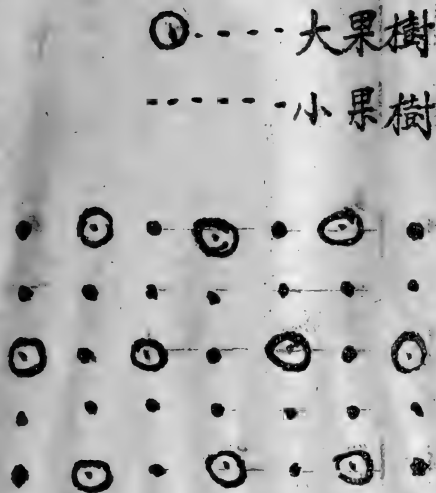 大果樹
小果樹